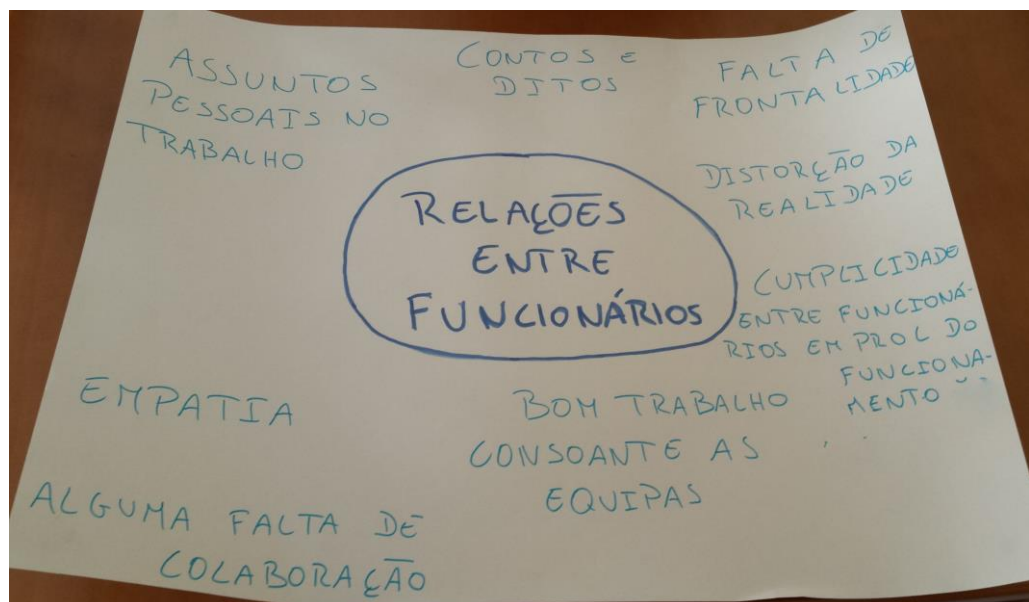 ASSUNTOS
PESSOAIS NO
TRABALHO
CONTOS E
DITOS
FALTA DE
FRONTALIDADE
DISTORÇÃO DA
REALIDADE
RELAÇÕES
ENTRE
FUNCIONÁRIOS
CUMPLICIDADE
ENTRE FUNCIONÁ-
RIOS EM PROL DO
FUNCIONA-
MENTO
EMPATIA
BOM TRABALHO
CONSOANTE AS
EQUIPAS
ALGUMA FALTA DE
COLABORAÇÃO